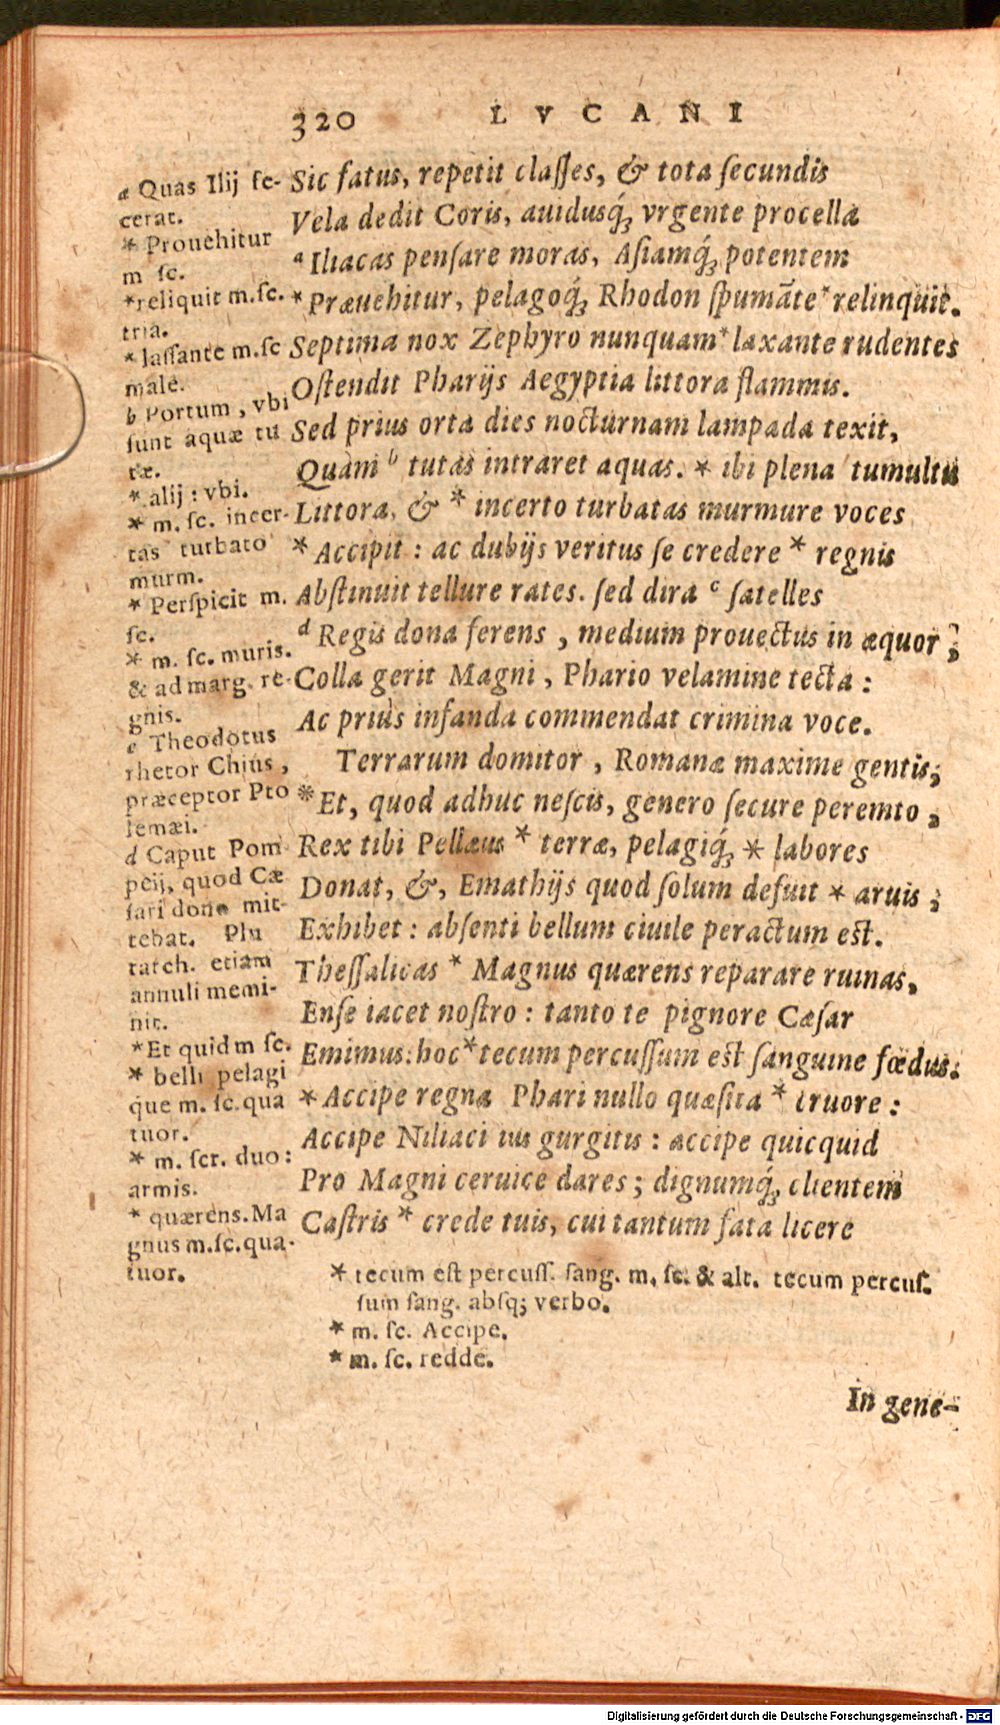 320 LVCANI
Sic fatus, repetit claſſes, & tota ſecundis
Vela dedit Coris, auidusq́; vrgente procella
ᵃ Iliacas penſare moras, Aſiamq́; potentem
* Præuehitur, pelagoq́; Rhodon ſpumāte * relinquit.
Septima nox Zephyro nunquam * laxante rudentes
Oſtendit Pharijs Aegyptia littora flammis.
Sed prius orta dies nocturnam lampada texit,
Quàm ᵇ tutas intraret aquas. * ibi plena tumultu
Littora, & * incerto turbatas murmure voces
* Accipit : ac dubijs veritus ſe credere * regnis
Abſtinuit tellure rates. ſed dira ᶜ ſatelles
ᵈ Regis dona ferens, medium prouectus in æquor;
Colla gerit Magni, Phario velamine tecta :
Ac priùs infanda commendat crimina voce.
Terrarum domitor, Romanæ maxime gentis;
* Et, quod adhuc neſcis, genero ſecure peremto,
Rex tibi Pellæus * terræ, pelagiq́; * labores
Donat, &, Emathijs quod ſolum defuit * aruis ;
Exhibet : abſenti bellum ciuile peractum est.
Theſſalicas * Magnus quærens reparare ruinas,
Enſe iacet noſtro : tanto te pignore Cæſar
Emimus: hoc * tecum percuſſum est ſanguine fœdus.
* Accipe regna Phari nullo quæſita * cruore :
Accipe Niliaci ius gurgitis : accipe quicquid
Pro Magni ceruice dares ; dignumq́; clientem
Caſtris * crede tuis, cui tantum fata licere
a Quas Ilij fe-
cerat.
* Prouehitur
m ſc.
* reliquit m. ſc.
tria.
* laſſante m. ſc
male.
b Portum, vbi
ſunt aquæ tu
tæ.
* alij : vbi.
* m. ſc. incer-
tas turbato
murm.
* Perſpicit m.
ſc.
* m. ſc. muris.
& ad marg. re-
gnis.
c Theodotus
rhetor Chius,
præceptor Pto
lemæi.
d Caput Pom
peij, quod Cæ
ſari dono mit-
tebat. Plu
tarch. etiam
annuli memi-
nit.
* Et quid m ſc.
* belli pelagi
que m. ſc. qua
tuor.
* m. ſcr. duo:
armis.
* quærens. Ma
gnus m. ſc. qua-
tuor.
* tecum est percuſſ. ſang. m. ſc. & alt. tecum percuſ.
ſum ſang. abſq; verbo.
* m. ſc. Accipe.
* m. ſc. redde.
In gene-
Digitalisierung gefördert durch die Deutsche Forschungsgemeinschaft - DFG